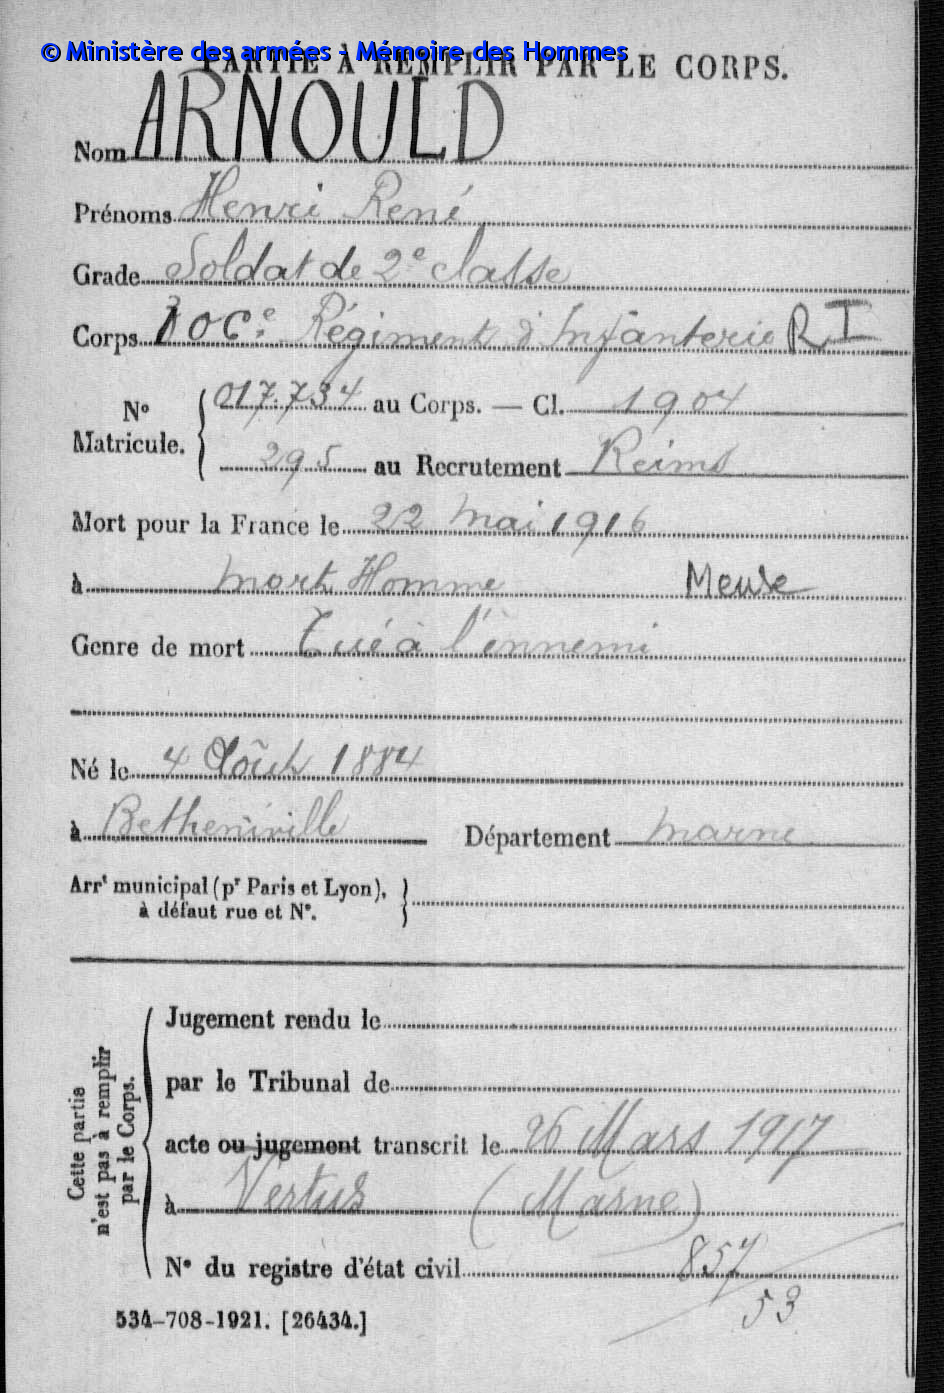 © Ministère des armées - Mémoire des Hommes
PARTIE À REMPLIR PAR LE CORPS.
Nom ARNOULD
Prénoms Henri René
Grade Soldat de 2e classe
Corps 106e Régiment d'Infanterie RI
No Matricule. 017.734 au Corps. — Cl. 1904
295 au Recrutement Reims
Mort pour la France le 22 Mai 1916
à Mort Homme Meuse
Genre de mort Tué à l'ennemi
Né le 4 Août 1884
à Betheniville Département Marne
Arrt municipal (pr Paris et Lyon),
à défaut rue et No.
Cette partie n'est pas à remplir par le Corps.
Jugement rendu le
par le Tribunal de
acte ou jugement transcrit le 26 Mars 1917
à Vertus (Marne)
No du registre d'état civil 857
53
534-708-1921. [26434.]